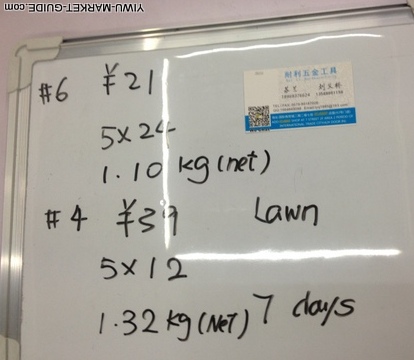 YIWU-MARKET-GUIDE.com
#6 ¥21
耐利五金工具
5×24
1.10 kg (net)
#4 ¥39 Lawn
5×12
1.32 kg (NeT) 7 days